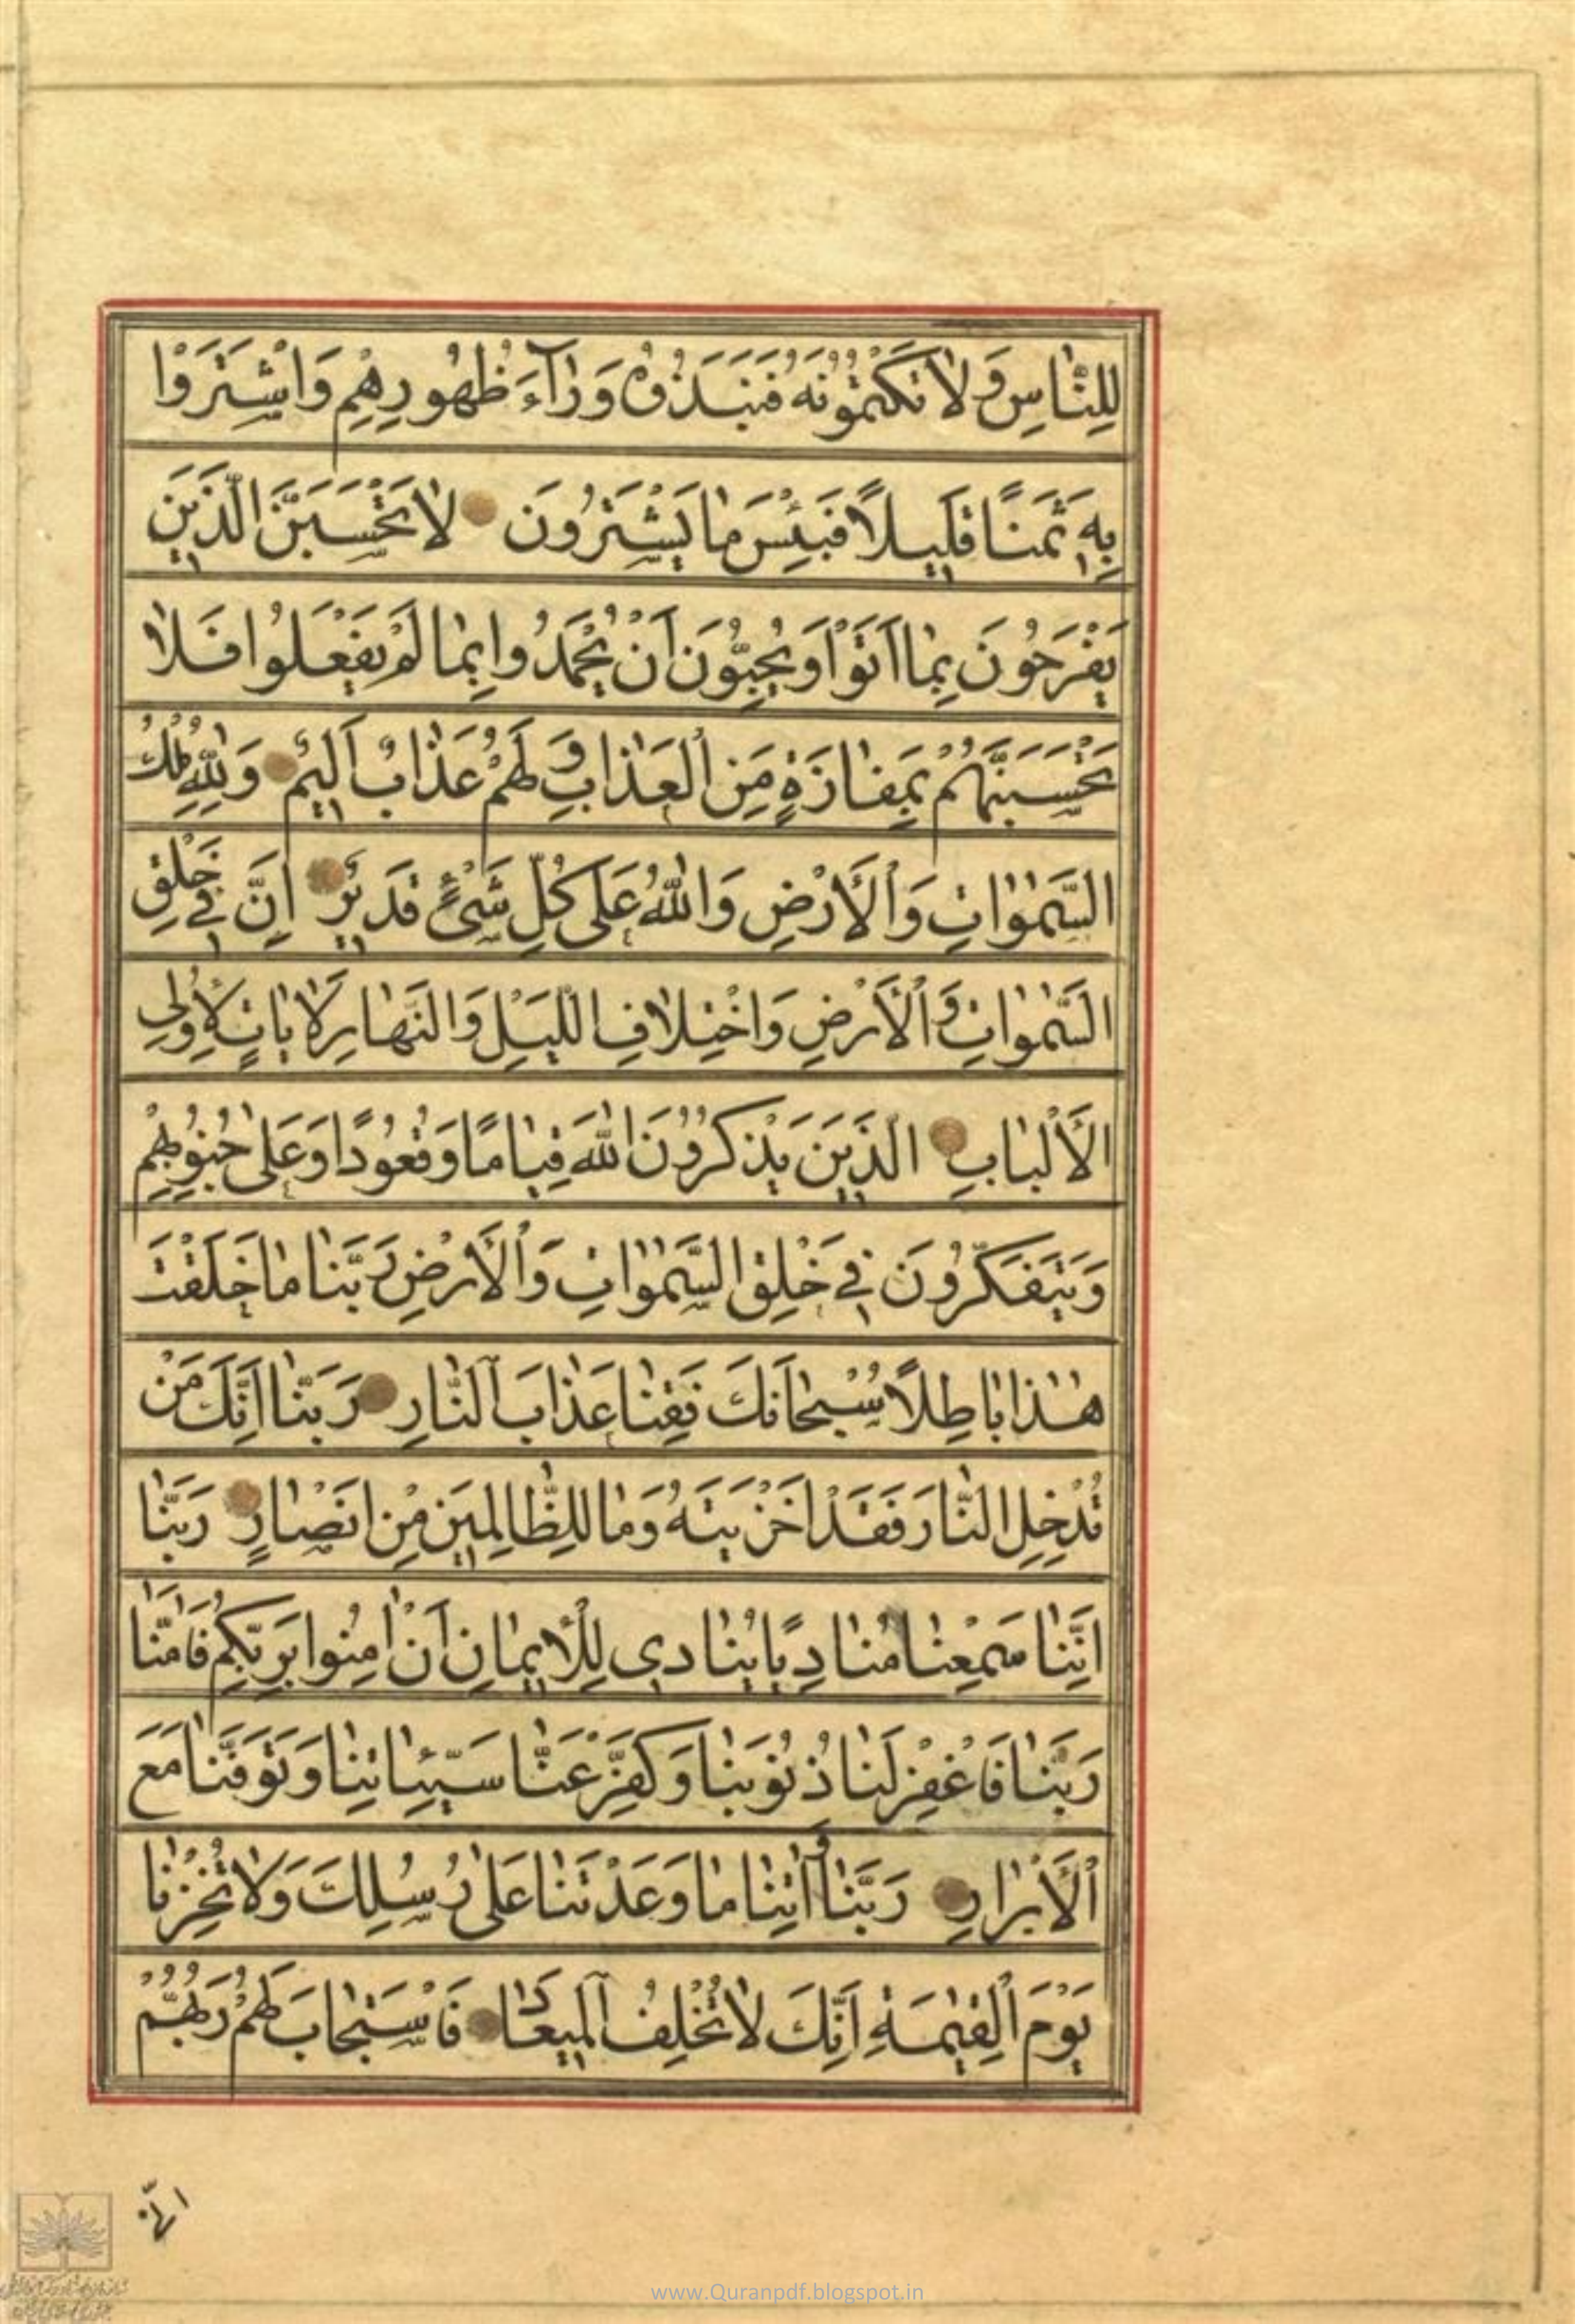 لِلنّٰاسِ وَلٰا تَكْتُمُونَهُ فَنَبَذُوهُ وَرٰآءَ ظُهُورِهِمْ وَاشْتَرَوْا
بِهِ ثَمَنًا قَلِيلًا فَبِئْسَ مٰا يَشْتَرُونَ لٰا تَحْسَبَنَّ الَّذِينَ
يَفْرَحُونَ بِمٰا اَتَوْا وَيُحِبُّونَ اَنْ يُحْمَدُوا بِمٰا لَمْ يَفْعَلُوا فَلٰا
تَحْسَبَنَّهُمْ بِمَفٰازَةٍ مِنَ الْعَذٰابِ وَلَهُمْ عَذٰابٌ اَلِيمٌ وَلِلّٰهِ مُلْكُ
السَّمٰوٰاتِ وَالْاَرْضِ وَاللّٰهُ عَلٰى كُلِّ شَىْءٍ قَدِيرٌ اِنَّ فِي خَلْقِ
السَّمٰوٰاتِ وَالْاَرْضِ وَاخْتِلٰافِ اللَّيْلِ وَالنَّهٰارِ لَاٰيٰاتٍ لِاُولِى
الْاَلْبٰابِ الَّذِينَ يَذْكُرُونَ اللّٰهَ قِيٰامًا وَقُعُودًا وَعَلٰى جُنُوبِهِمْ
وَيَتَفَكَّرُونَ فِي خَلْقِ السَّمٰوٰاتِ وَالْاَرْضِ رَبَّنٰا مٰا خَلَقْتَ
هٰذٰا بٰاطِلًا سُبْحٰانَكَ فَقِنٰا عَذٰابَ النّٰارِ رَبَّنٰا اِنَّكَ مَنْ
تُدْخِلِ النّٰارَ فَقَدْ اَخْزَيْتَهُ وَمٰا لِلظّٰالِمِينَ مِنْ اَنْصٰارٍ رَبَّنٰا
اِنَّنٰا سَمِعْنٰا مُنٰادِيًا يُنٰادِى لِلْاِيمٰانِ اَنْ اٰمِنُوا بِرَبِّكُمْ فَاٰمَنّٰا
رَبَّنٰا فَاغْفِرْ لَنٰا ذُنُوبَنٰا وَكَفِّرْ عَنّٰا سَيِّئٰاتِنٰا وَتَوَفَّنٰا مَعَ
الْاَبْرٰارِ رَبَّنٰا وَاٰتِنٰا مٰا وَعَدْتَنٰا عَلٰى رُسُلِكَ وَلٰا تُخْزِنٰا
يَوْمَ الْقِيٰمَةِ اِنَّكَ لٰا تُخْلِفُ الْمِيعٰادَ فَاسْتَجٰابَ لَهُمْ رَبُّهُمْ
انّى
www.Quranpdf.blogspot.in